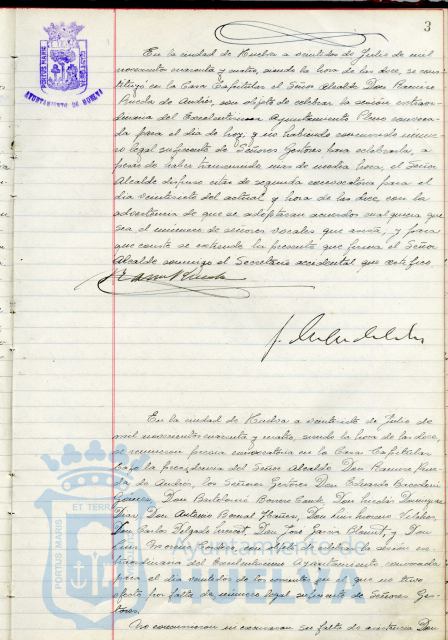 3
PORTUS MARIS ET TERRAE CUSTODIA
AYUNTAMIENTO DE HUELVA
En la ciudad de Huelva a veintidos de Julio de mil
novecientos cuarenta y cuatro, siendo la hora de las doce, se cons-
tituyó en la Casa Capitular el Señor Alcalde Don Ramiro
Rueda de Andrés, con objeto de celebrar la sesión extraor-
dinaria del Excelentísimo Ayuntamiento Pleno convoca-
da para el día de hoy, y no habiendo concurrido núme-
ro legal suficiente de Señores Gestores para celebrarla, a
pesar de haber transcurrido mas de media hora, el Señor
Alcalde dispuso citar de segunda convocatoria para el
día veintiseis del actual y hora de las doce, con la
advertencia de que se adoptarán acuerdos cualquiera que
sea el número de señores vocales que asista, y para
que conste se extiende la presente que firma el Señor
Alcalde conmigo el Secretario accidental que certifico.
En la ciudad de Huelva a veintiseis de Julio de
mil novecientos cuarenta y cuatro, siendo la hora de las doce,
se reunieron previa convocatoria en la Casa Capitular
bajo la presidencia del Señor Alcalde Don Ramiro Rue-
da de Andrés, los Señores Gestores Don Eduardo
Don Bartolomé Borrero Don Nicolás Domínguez
Don Antonio Bernal Don Luis
Don Carlos Delgado Don José García y Don
Luis Moreno con objeto de celebrar la sesión ex-
traordinaria del Excelentísimo Ayuntamiento convocada
para el día veintidos de los corrientes en que no tuvo
efecto por falta de número legal suficiente de Señores Ges-
tores.
No concurrieron ni excusaron su falta de asistencia Don
PORTUS MARIS
ET TERRAE
Ayuntamiento de
HUELVA